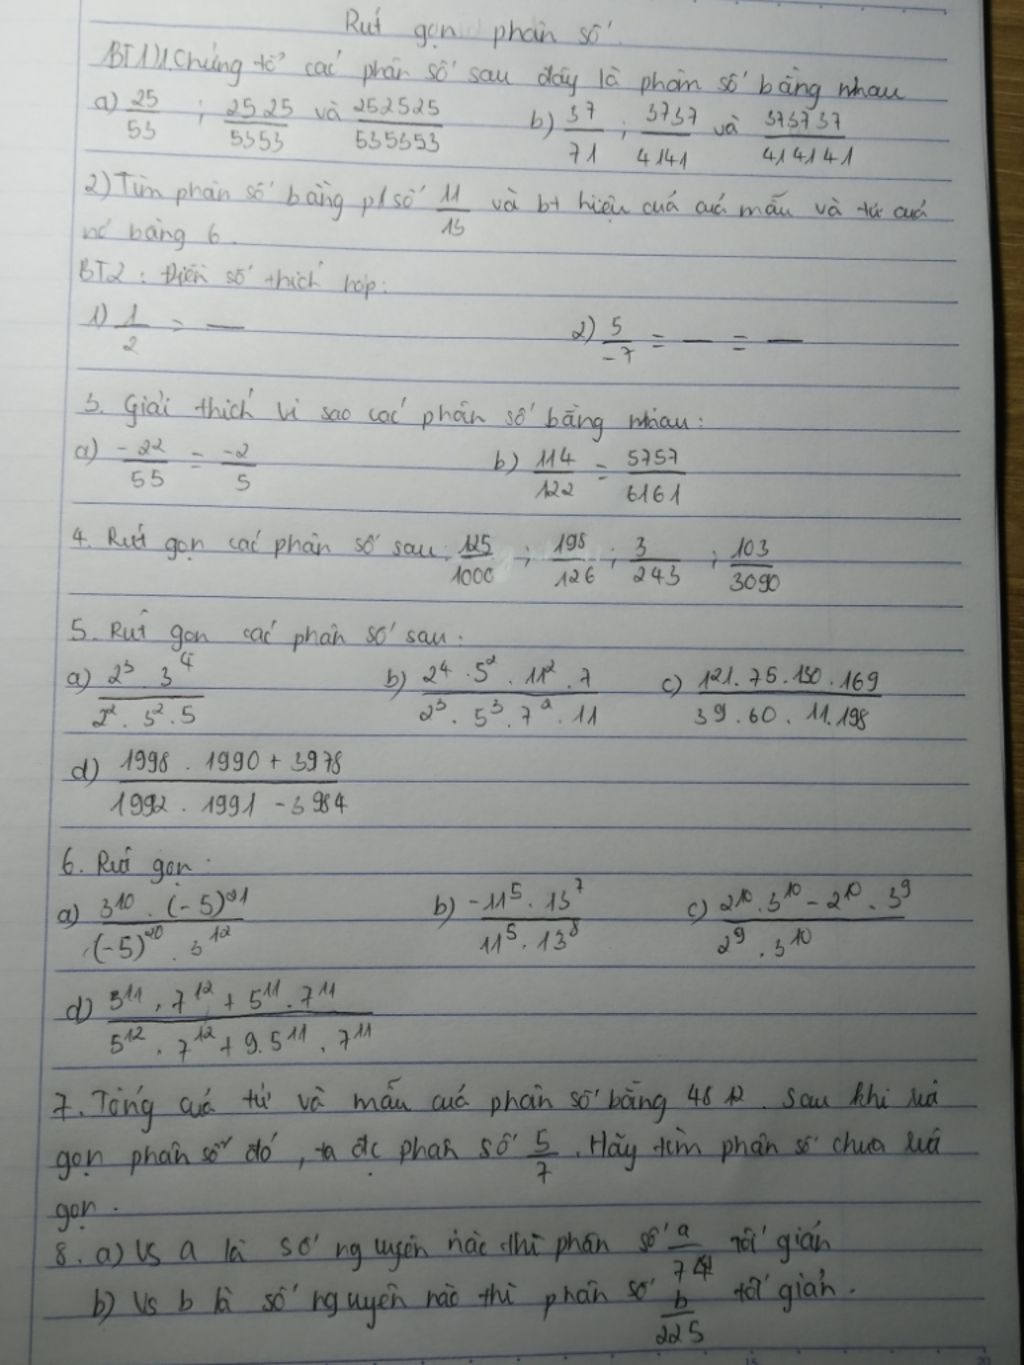 Rút gọn phân số.
BT1) 1. Chứng tỏ các phân số sau đây là phân số bằng nhau
a) 25/53 ; 2525/5353 và 252525/535353 b) 37/71 ; 3737/4141 và 373737/414141
2) Tìm phân số bằng p/số 11/15 và bt hiệu cuả cuả mẫu và tử cuả
nó bằng 6.
BT2 : Điền số thích hợp:
1) 1/2 = — 2) 5/-7 = — = —
3. Giải thích vì sao các phân số bằng nhau:
a) -22/55 = -2/5 b) 114/122 = 5757/6161
4. Rút gọn các phân số sau: 125/1000 ; 198/126 ; 3/243 ; 103/3090
5. Rút gọn các phân số sau:
a) 2³ . 3⁴ / 2² . 3² . 5 b) 2⁴ . 5² . 11² . 7 / 2³ . 5³ . 7² . 11 c) 121 . 75 . 130 . 169 / 39 . 60 . 11 . 198
d) 1998 . 1990 + 3978 / 1992 . 1991 - 3984
6. Rút gọn:
a) 3¹⁰ . (-5)²¹ / (-5)²⁰ . 3¹² b) -11⁵ . 13⁷ / 11⁵ . 13⁸ c) 2¹⁰ . 3¹⁰ - 2¹⁰ . 3⁹ / 2⁹ . 3¹⁰
d) 5¹¹ . 7¹² + 5¹¹ . 7¹¹ / 5¹² . 7¹² + 9 . 5¹¹ . 7¹¹
7. Tổng cuả tử và mẫu cuả phân số bằng 48 . Sau khi rút
gọn phân số đó, ta đc phân số 5/7 . Hãy tìm phân số chưa rút
gọn.
8. a) Vs a là số nguyên nào thì phân số a/74 tối giản
b) Vs b là số nguyên nào thì phân số b/225 tối giản.